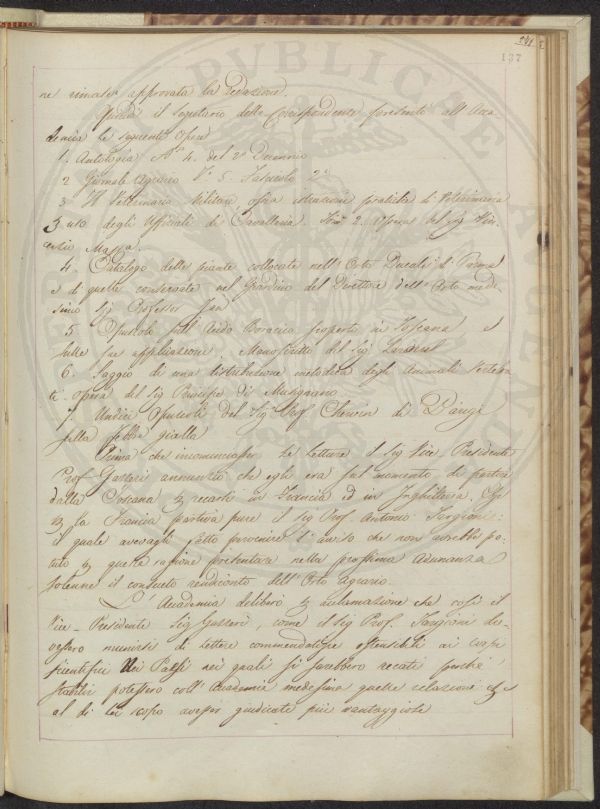 241
137
ne rimasta approvata la Redazione.
Quindi il segretario delle Corrispondenze presentò all'Acca
demia le seguenti Opere
1. Antologia N° 4. del 2° Decennio
2 Giornale Agrario N° 5. Fascicolo 2°
3 Il Veterinario Militare ossia istruzioni pratiche di Veterinaria
ad uso degli Uffiziali di Cavalleria. Tomi 2. Opera del Sig Vin
cenzio Massa.
4. Catalogo delle piante collocate nell'Orto Ducale di Parma
e di quelle conservate nel Giardino del Direttore dell'Orto mede-
simo Sig Professor Jan
5 Opuscolo sull'Acido Boracico scoperto in Toscana e
sulle sue applicazione. Manoscritto del Sig
6. Saggio di una distribuzione metodica degli Animali Vertebra
ti opera del Sig Principe di Musignano
7 Undici Opuscoli del Sig Prof. Chervin di Parigi
sulla febbre gialla
Prima che incominciasser le Letture il Sig Vice-Presidente
Prof Gazzeri annunziò che egli era sul momento di partire
dalla Toscana per recarsi in Francia ed in Inghilterra. Che
per la Francia partiva pure il Sig Prof. Antonio Targioni:
il quale aveagli fatto pervenire l'avviso che non avrebbe po-
tuto per questa ragione presentare nella prossima adunanza
solenne il consueto rendiconto dell'Orto agrario.
L'Accademia deliberò per acclamazione che così il
Vice-Presidente Sig Gazzeri, come il Sig Prof. Targioni do-
vessero munirsi di Lettere commendatizie ostensibili ai corpi
scientifici dei Paesi nei quali si sarebbero recati perchè
stabilir potessero coll'Accademia medesima quelle relazioni che
al di lei scopo avesser giudicate più vantaggiose